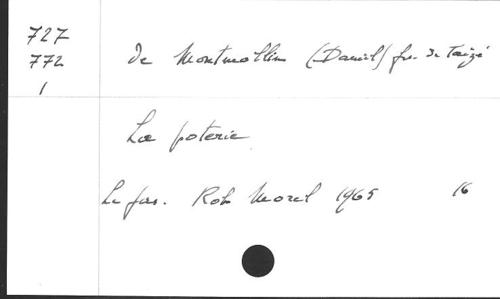 727
772
1
de Montmollin (Daniel) fr. de Taizé
La poterie
Le jas. Rob Morel 1965 16